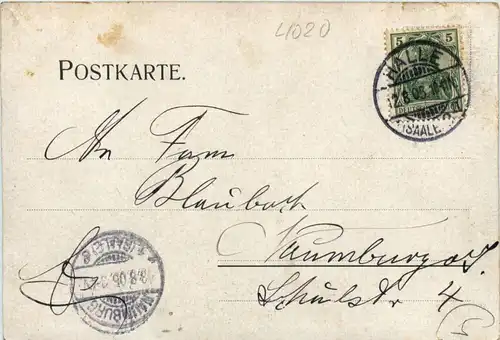 4020
5 5
HALLE
12.8.06.
(SAALE)
POSTKARTE.
An Fam
Blaubach
Naumburg a/S.
Schulstr 4
NAUMBURG
(SAALE)